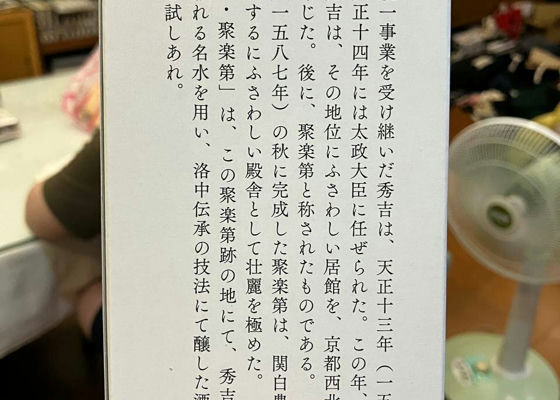 一事業を受け継いだ秀吉は、天正十三年（一五
正十四年には太政大臣に任ぜられた。この年、
吉は、その地位にふさわしい居館を、京都西北
じた。後に、聚楽第と称されたものである。
一五八七年）の秋に完成した聚楽第は、関白豊
するにふさわしい殿舎として壮麗を極めた。
・聚楽第」は、この聚楽第跡の地にて、秀吉
れる名水を用い、洛中伝承の技法にて醸した酒
試しあれ。